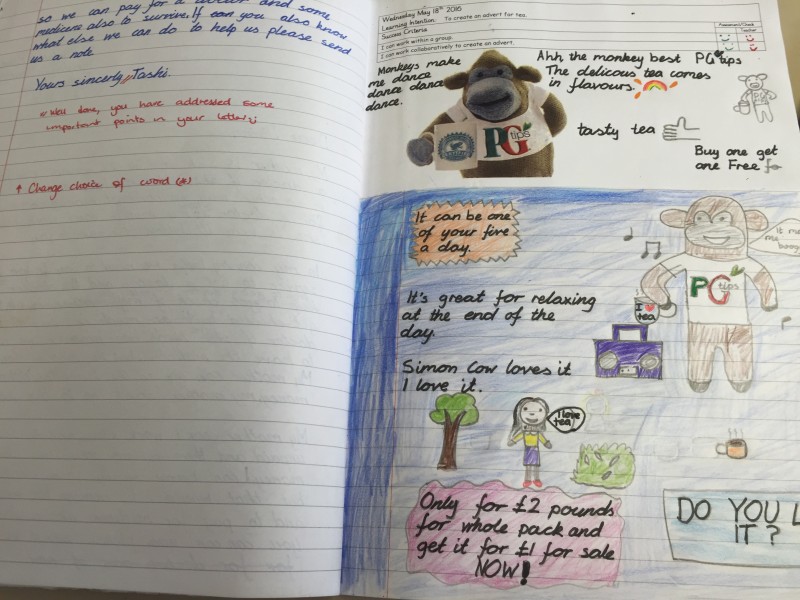 so we can pay for a doctor and some
medicine also to survive. If can you also know
what else we can do to help us please send
us a note.
Yours sincerly, Toshi.
Well done, you have addressed some
important points in your letter
Change choice of word
Wednesday May 18th 2016
Learning Intention. To create an advert for tea.
Success Criteria
Assessment/Check
Teacher
I can work within a group.
I can work collaboratively to create an advert.
Monkeys make
me dance
dance dance
dance.
PG tips
Ahh the monkey best PG tips
The delicous tea comes
in flavours.
tasty tea
Buy one get
one Free
It can be one
of your five
a day.
PG tips
I ❤ tea
It's great for relaxing
at the end of the
day.
Simon Cow loves it
I love it.
I love
tea
Only for £2 pounds
for whole pack and
get it for £1 for sale
NOW!
DO YOU L
IT?